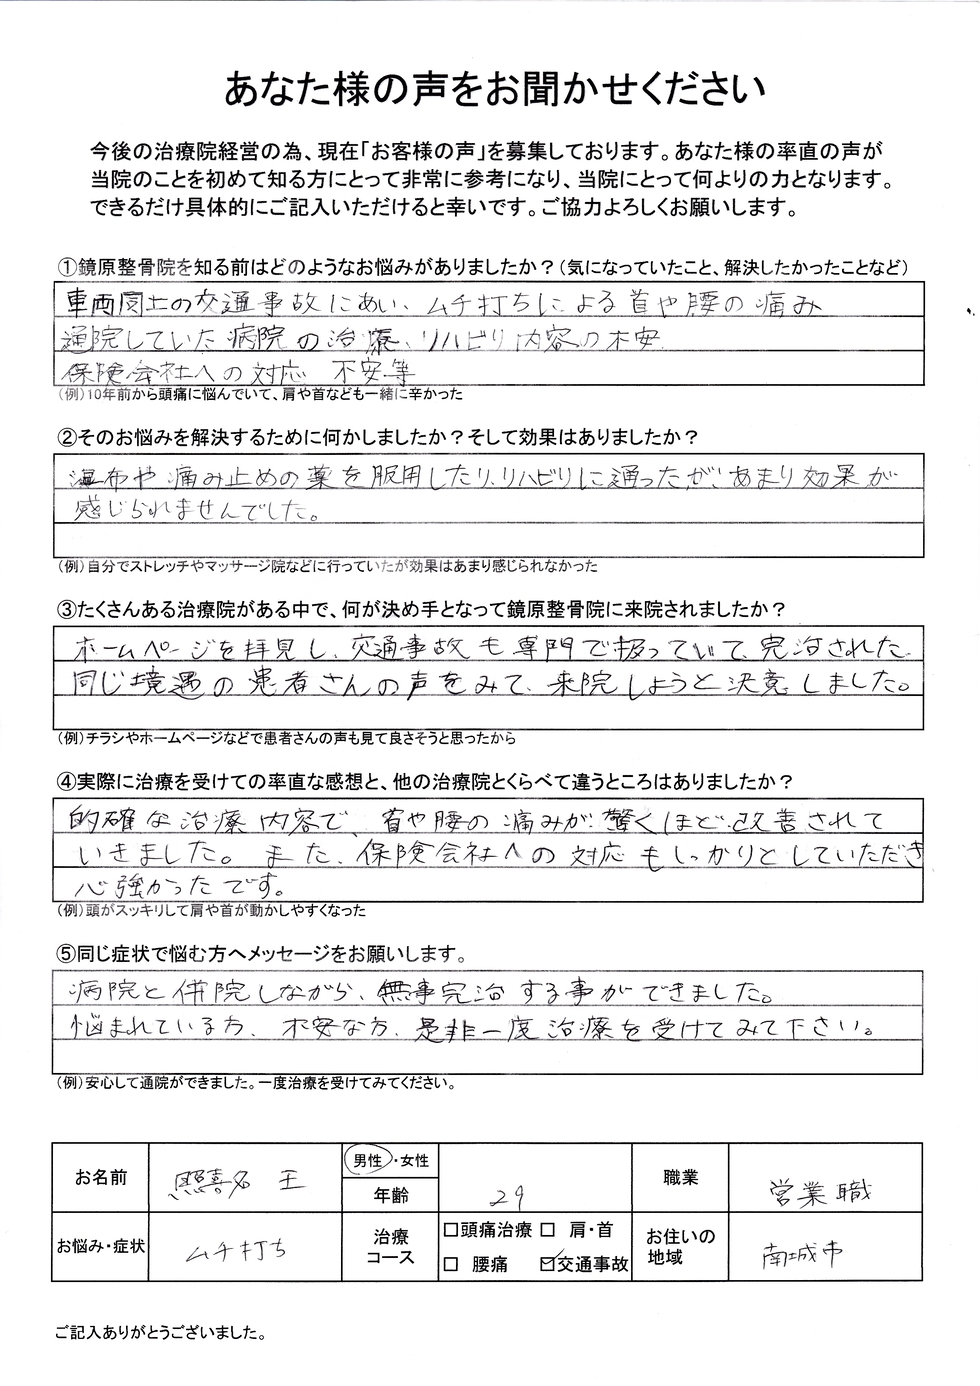 あなた様の声をお聞かせください
今後の治療院経営の為、現在「お客様の声」を募集しております。あなた様の率直の声が
当院のことを初めて知る方にとって非常に参考になり、当院にとって何よりの力となります。
できるだけ具体的にご記入いただけると幸いです。ご協力よろしくお願いします。
①鏡原整骨院を知る前はどのようなお悩みがありましたか？(気になっていたこと、解決したかったことなど)
車両同士の交通事故にあい、ムチ打ちによる首や腰の痛み
通院していた病院の治療、リハビリ内容の不安
保険会社への対応 不安等
(例)10年前から頭痛に悩んでいて、肩や首なども一緒に辛かった
②そのお悩みを解決するために何かしましたか？そして効果はありましたか？
湿布や痛み止めの薬を服用したり、リハビリに通ったが、あまり効果が
感じられませんでした。
(例)自分でストレッチやマッサージ院などに行っていたが効果はあまり感じられなかった
③たくさんある治療院がある中で、何が決め手となって鏡原整骨院に来院されましたか？
ホームページを拝見し、交通事故も専門で扱っていて、完治された
同じ境遇の患者さんの声をみて、来院しようと決意しました。
(例)チラシやホームページなどで患者さんの声も見て良さそうと思ったから
④実際に治療を受けての率直な感想と、他の治療院とくらべて違うところはありましたか？
的確な治療内容で、首や腰の痛みが驚くほど改善されて
いきました。また、保険会社への対応もしっかりとしていただき
心強かったです。
(例)頭がスッキリして肩や首が動かしやすくなった
⑤同じ症状で悩む方へメッセージをお願いします。
病院と併院しながら、無事完治する事ができました。
悩まれている方、不安な方、是非一度治療を受けてみて下さい。
(例)安心して通院ができました。一度治療を受けてみてください。
お名前 照喜名 王 男性・女性 職業 営業職
年齢 29
お悩み・症状 ムチ打ち 治療コース □頭痛治療 □ 肩・首 お住いの地域 南城市
□ 腰痛 ☑交通事故
ご記入ありがとうございました。